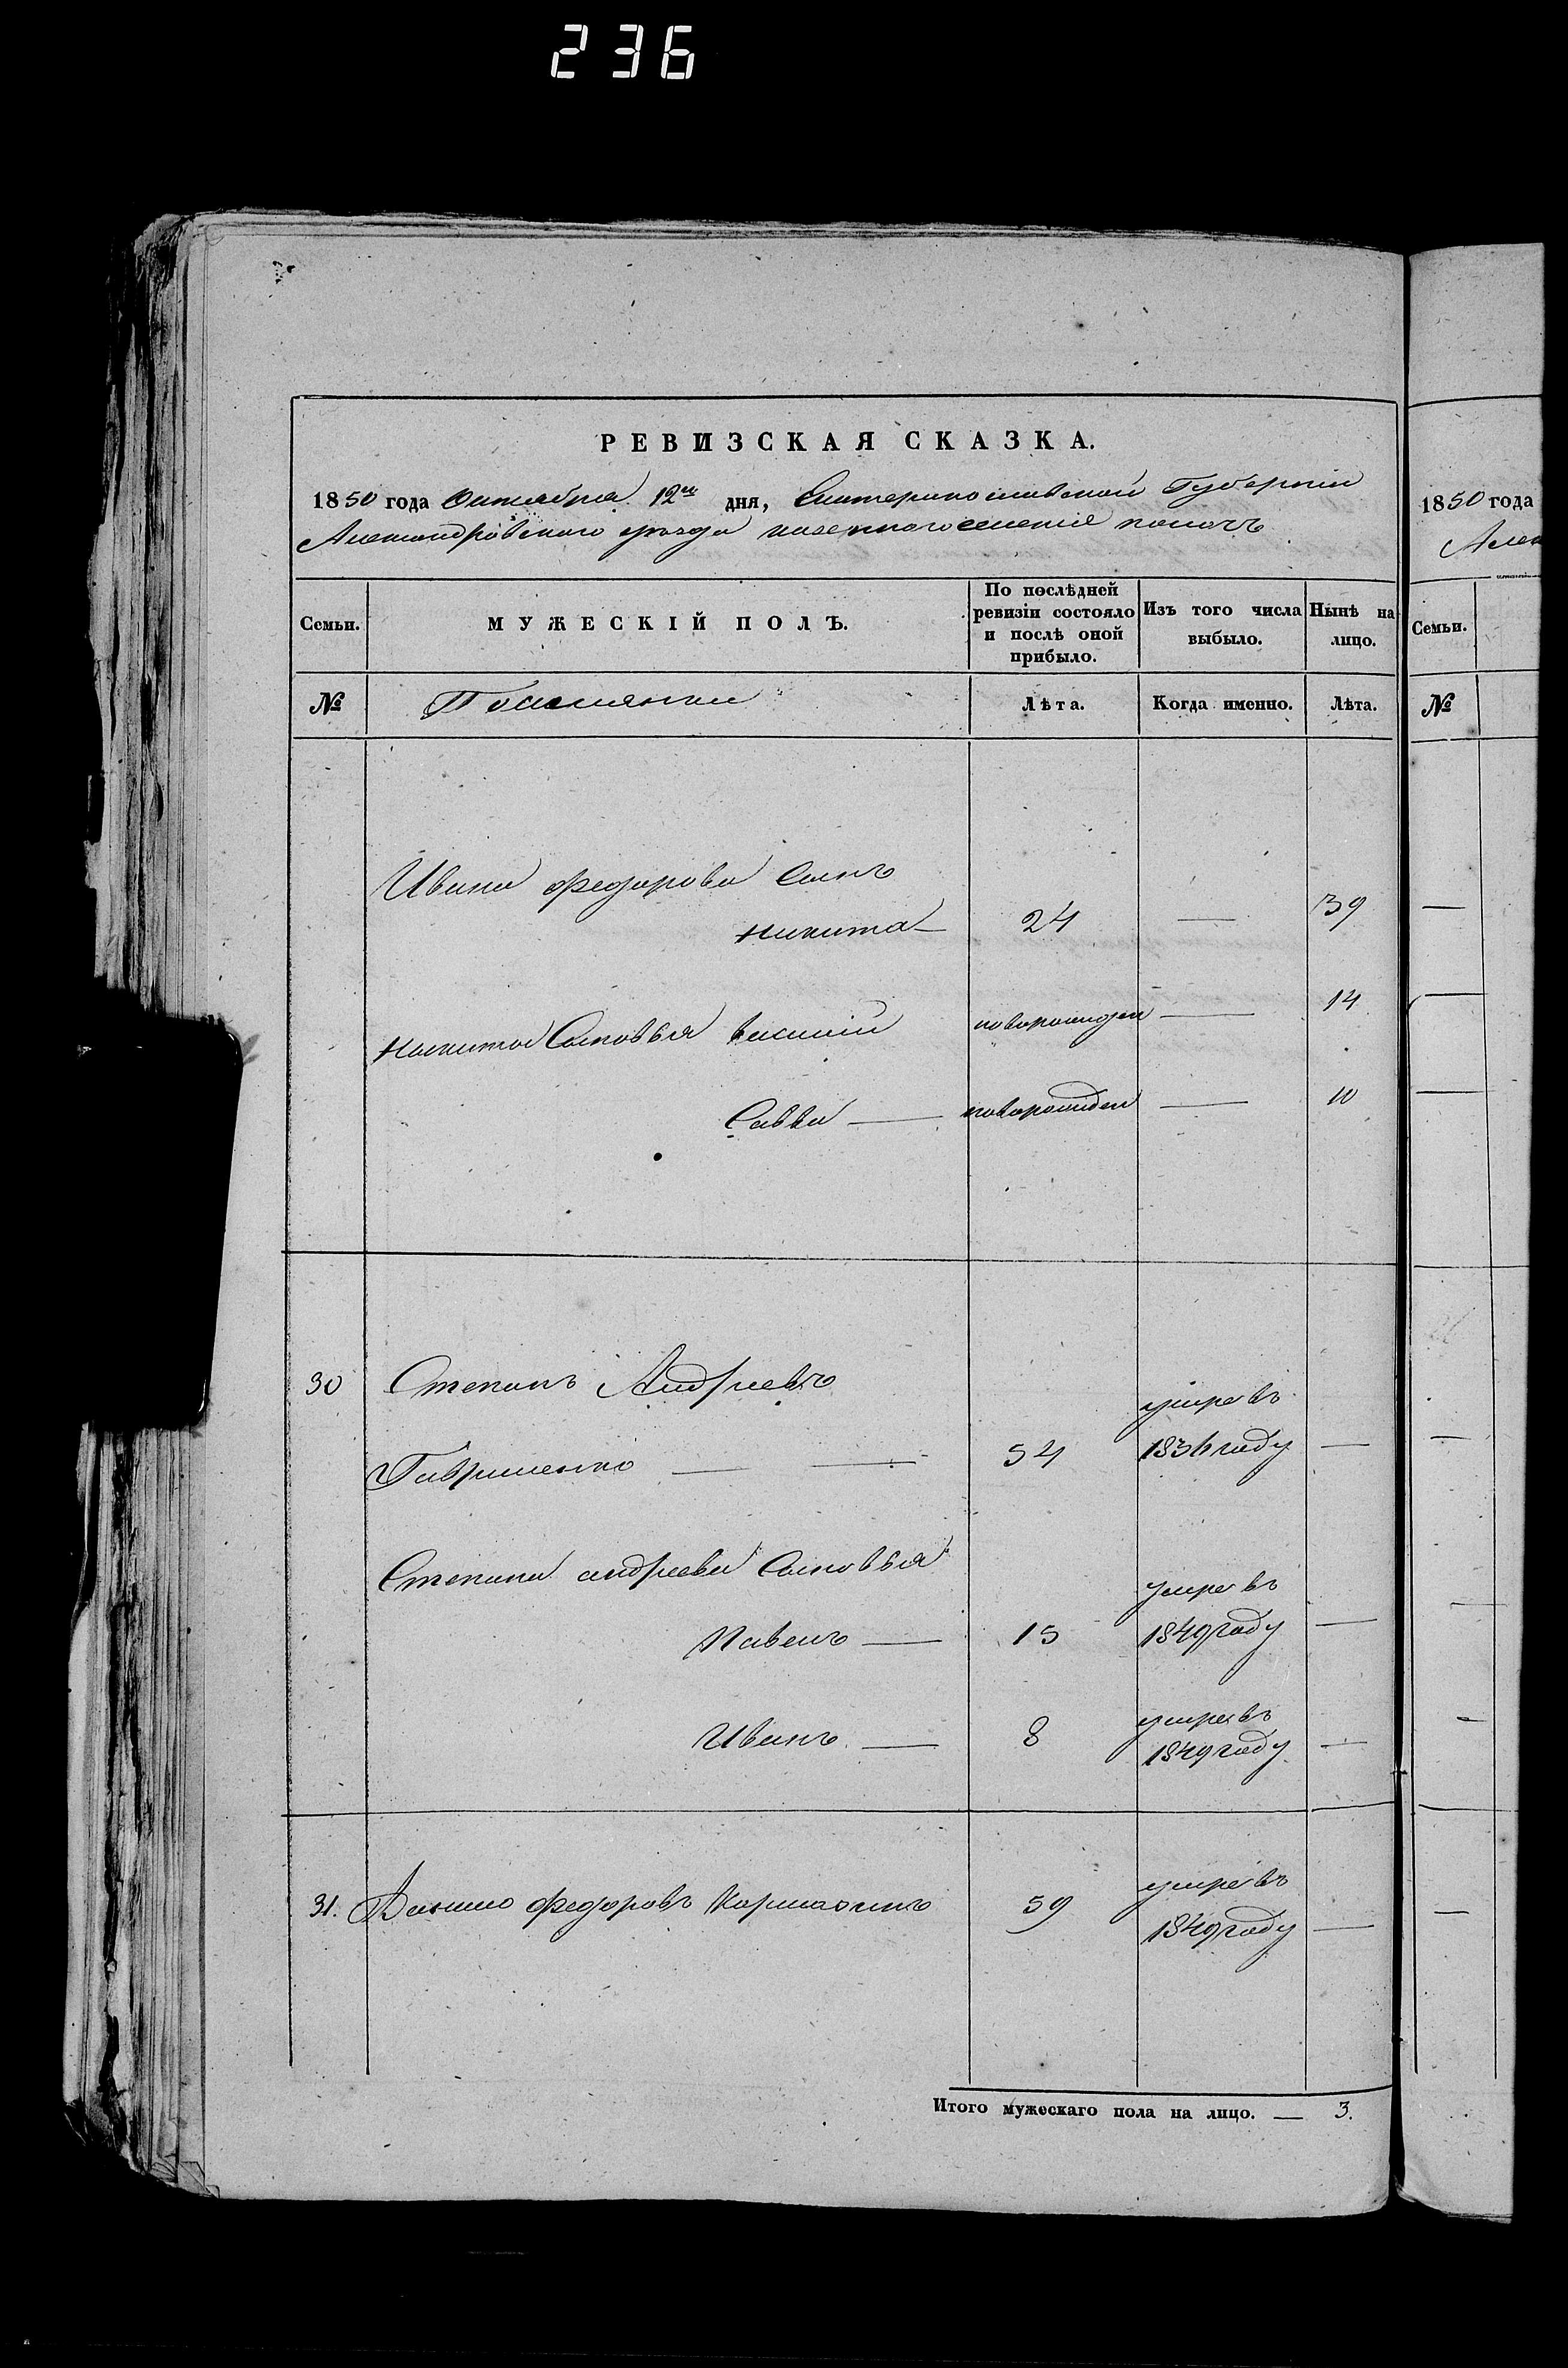 236
РЕВИЗСКАЯ СКАЗКА.
1850 года Октября 12го дня, Екатеринославской Губернии
Александровского уѣзда казенного селения
Семьи. МУЖЕСКІЙ ПОЛЪ. По послѣдней ревизіи состояло и послѣ оной прибыло. Изъ того числа выбыло. Нынѣ на лицо.
№ Поселянки Лѣта. Когда именно. Лѣта.
Ивана Федорова Сынъ
Никита — 24 — 39
Никиты Сыновья Василий новорожден — 14
Савва — новорожден — 10
30 Степанъ Андреевъ умре въ
Гавриленко — — 54 1836 году —
Степана андреева Сыновья умре въ
Павелъ — 15 1849 году —
Иванъ — 8 умре въ
1849 году —
31. Федоровъ 59 умре въ
1849 году —
Итого мужескаго пола на лицо. — 3.
1850 года
Алек
Семьи.
№